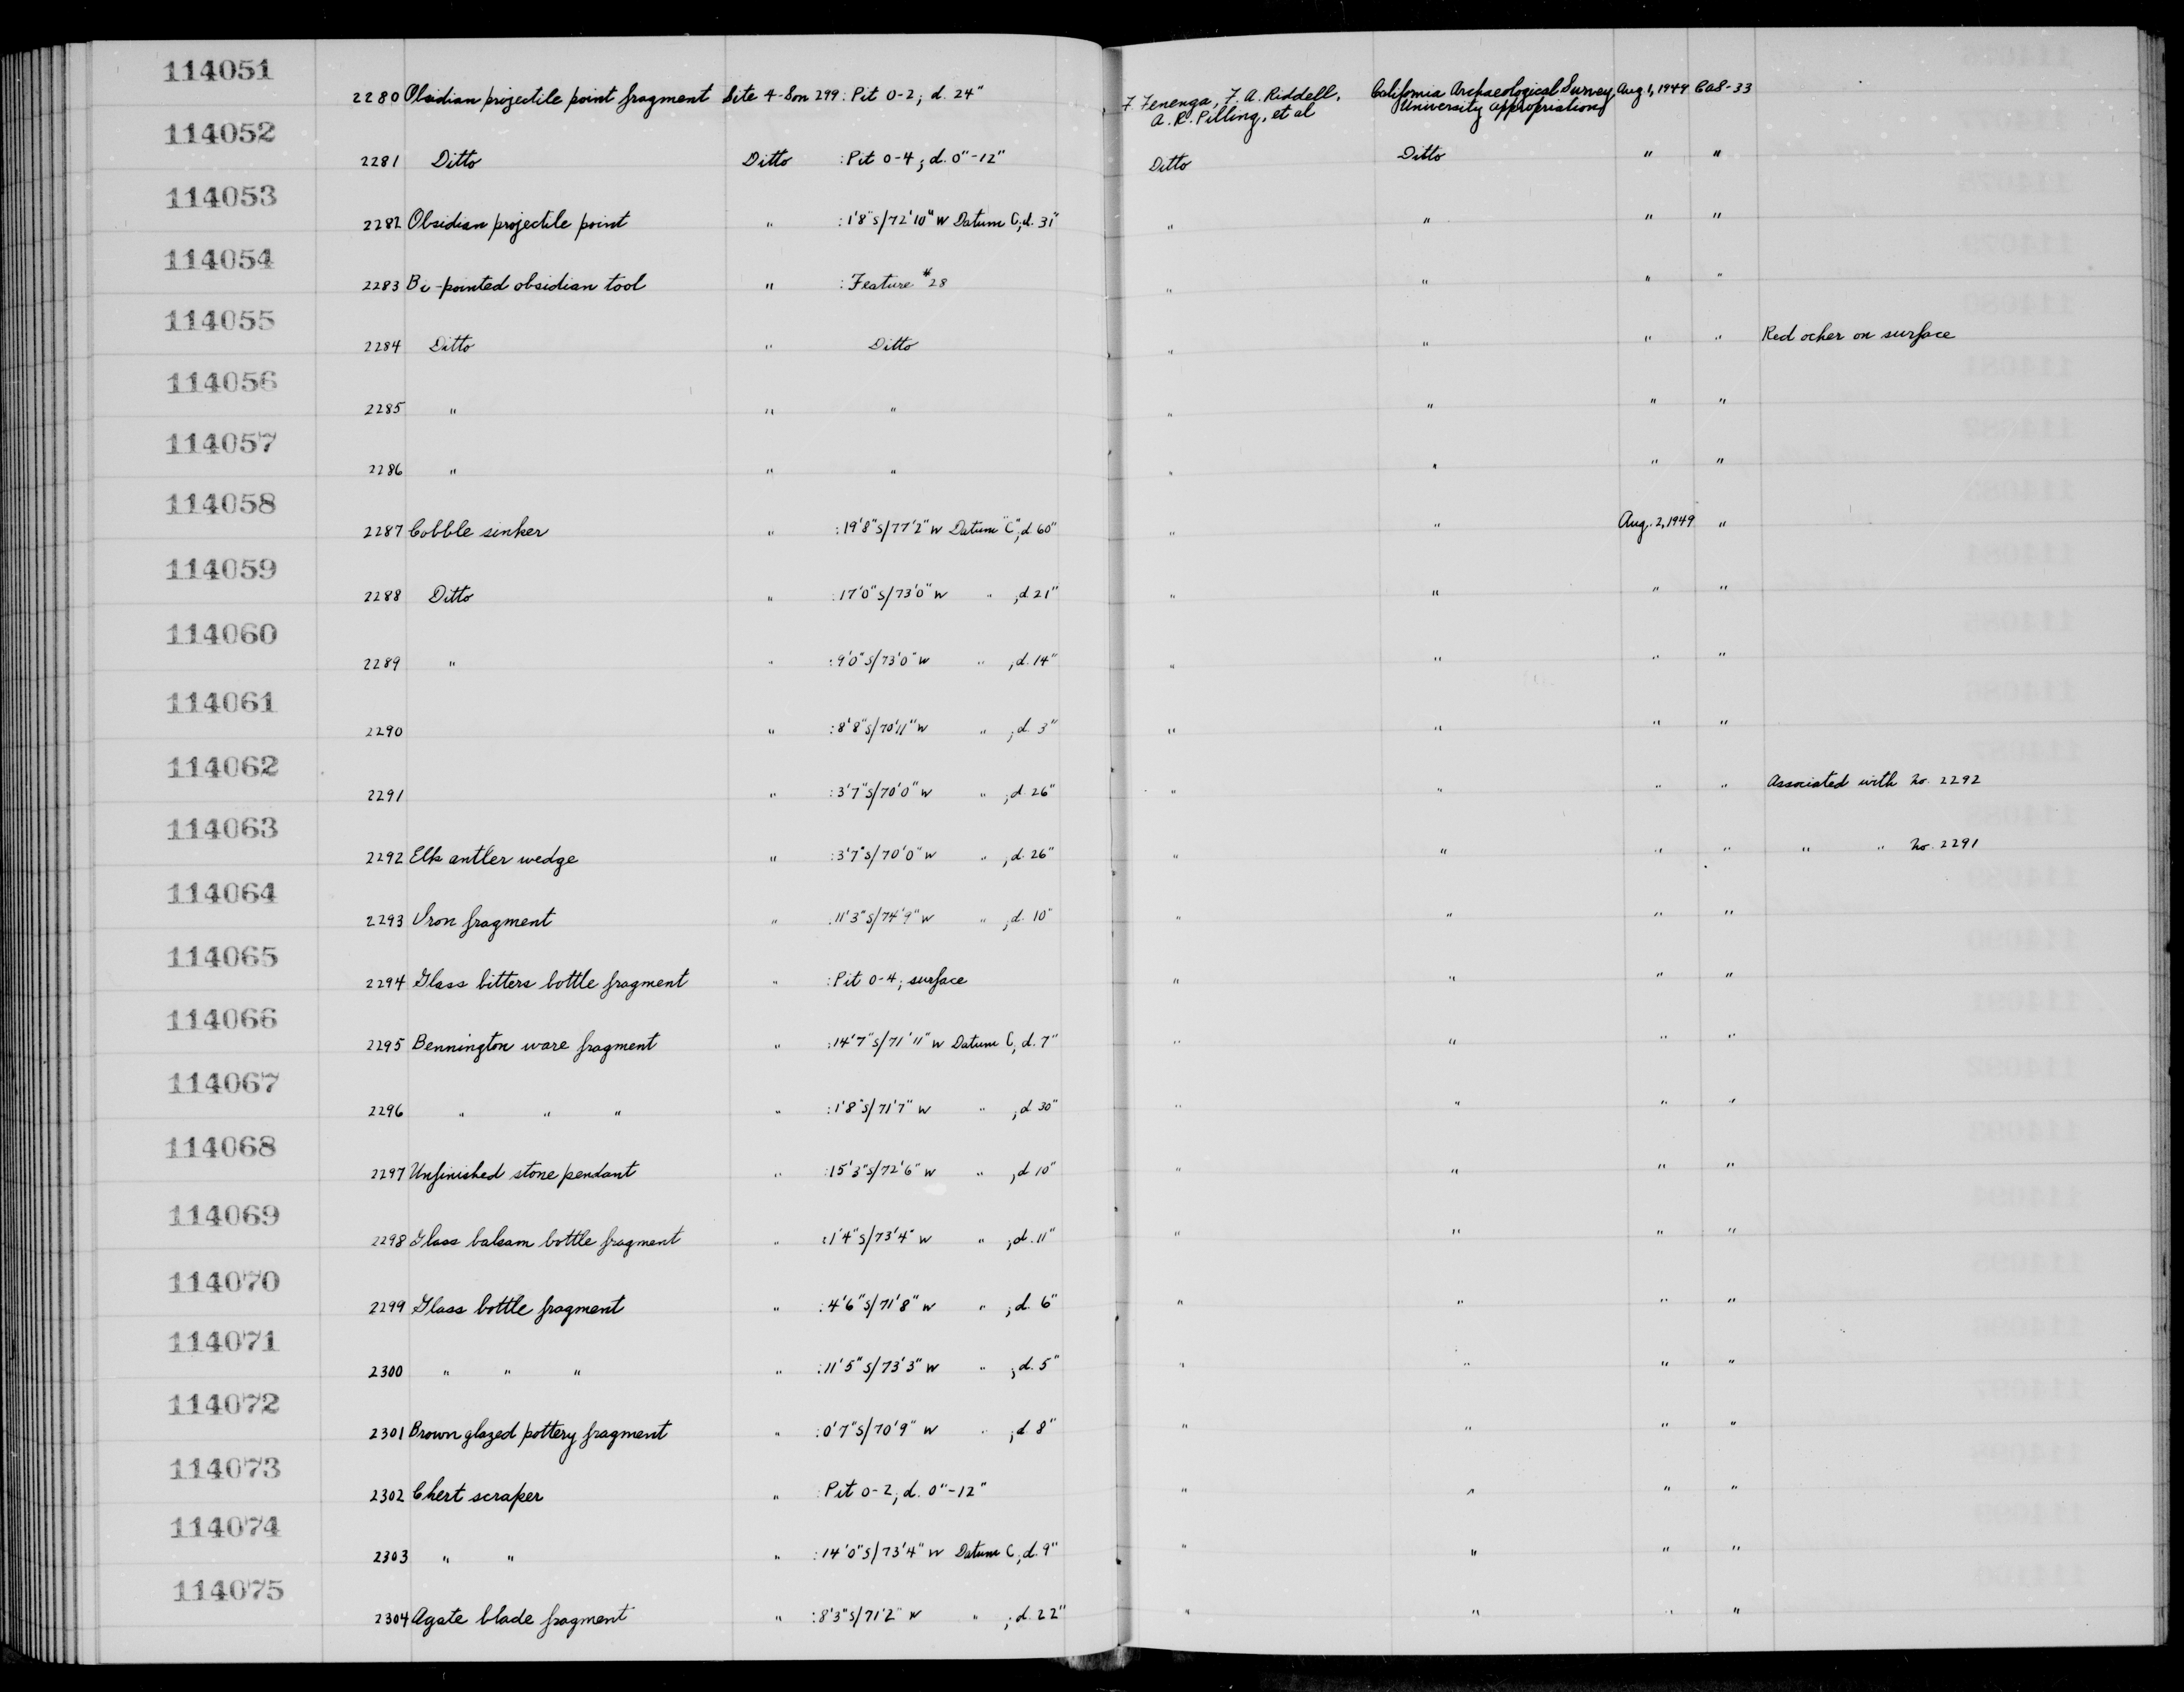 114051
2280 Obsidian projectile point fragment Site 4-Son 299 : Pit 0-2; d. 24" F Fenenga, F. A. Riddell, California Archaeological Survey Aug 1, 1949 CAS-33
A. R. Pilling, et al University appropriations
114052
2281 Ditto Ditto : Pit 0-4; d. 0"-12" Ditto Ditto " "
114053
2282 Obsidian projectile point " : 1'8"S/72'10"W Datum C; d. 31" " " " "
114054
2283 Bi-pointed obsidian tool " : Feature #28 " " " "
114055
2284 Ditto " Ditto " " " " Red ocher on surface
114056
2285 " " " " " " "
114057
2286 " " " " " " "
114058
2287 Cobble sinker " : 19'8"S/77'2"W Datum "C", d 60" " " Aug. 2, 1949 "
114059
2288 Ditto " : 17'0"S/73'0"W " ; d 21" " " " "
114060
2289 " " : 9'0"S/73'0"W " ; d. 14" " " " "
114061
2290 " : 8'8"S/70'11"W " ; d. 3" " " " "
114062
2291 " : 3'7"S/70'0"W " ; d. 26" " " " " Associated with No. 2292
114063
2292 Elk antler wedge " : 3'7"S/70'0"W " ; d. 26" " " " " " " No. 2291
114064
2293 Iron fragment " : 11'3"S/74'9"W " ; d. 10" " " " "
114065
2294 Glass bitters bottle fragment " : Pit 0-4; surface " " " "
114066
2295 Bennington ware fragment " : 14'7"S/71'11"W Datum C, d. 7" " " " "
114067
2296 " " " " : 1'8"S/71'7"W " ; d 30" " " " "
114068
2297 Unfinished stone pendant " : 15'3"S/72'6"W " ; d 10" " " " "
114069
2298 Glass balsam bottle fragment " : 1'4"S/73'4"W " ; d. 11" " " " "
114070
2299 Glass bottle fragment " : 4'6"S/71'8"W " ; d. 6" " " " "
114071
2300 " " " " : 11'5"S/73'3"W " ; d. 5" " " " "
114072
2301 Brown glazed pottery fragment " : 0'7"S/70'9"W " ; d 8" " " " "
114073
2302 Chert scraper " : Pit 0-2; d. 0"-12" " " " "
114074
2303 " " " : 14'0"S/73'4"W Datum C, d. 9" " " " "
114075
2304 Agate blade fragment " : 8'3"S/71'2"W " ; d. 22" " " " "